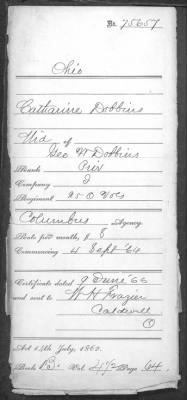 No. 75657
Ohio
Catharine Dobbins
Wid of
Geo W Dobbins
Rank Priv
Company I
Regiment 25 O Vols
Columbus Agency.
Rate per month, $ 8
Commencing 4 Sept '64
Certificate dated 9 June '66
and sent to W H Frazier
Caldwell
O
Act 14th July, 1862.
Book B. Vol. 4 Page 64.